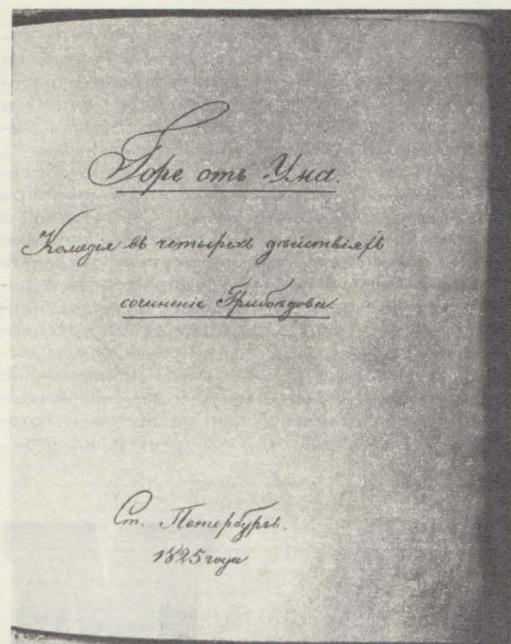 Горе отъ Ума.
Комедія въ четырехъ дѣйствіяхъ
сочиненіе Грибоѣдова.
Ст. Петербургъ.
1825 года